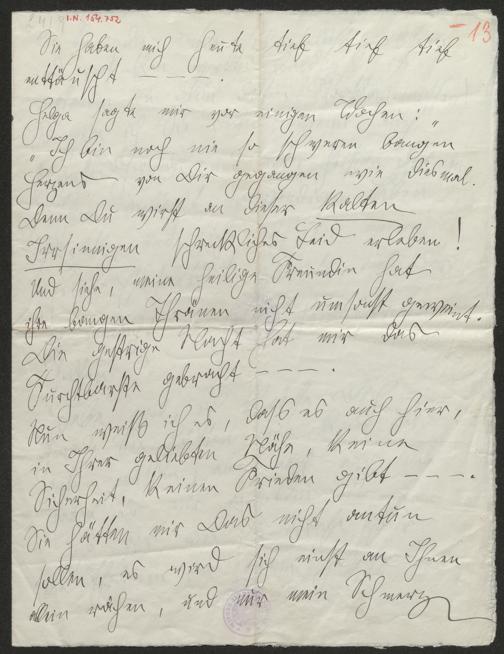 I.N. 164.752
13
Sie haben mich heute tief tief tief
enttäuscht – – – – .
Helga sagte mir vor einigen Wochen: „
„Ich bin noch nie so schweren bangen
Herzens von Dir gegangen wie diesmal.
Denn Du wirst an dieser kalten
Irrsinnigen schreckliches Leid erleben!
Und siehe, meine heilige Freundin hat
ihre bangen Thränen nicht umsonst geweint.
Die gestrige Nacht hat mir das
Furchtbarste gebracht – – – – .
Nun weiß ich es, dass es auch hier,
in Ihrer geliebten Nähe, keine
Sicherheit, keinen Frieden gibt – – – .
Sie hätten mir das nicht antun
sollen, es wird sich einst an Ihnen
rächen, und nur mein Schmerz